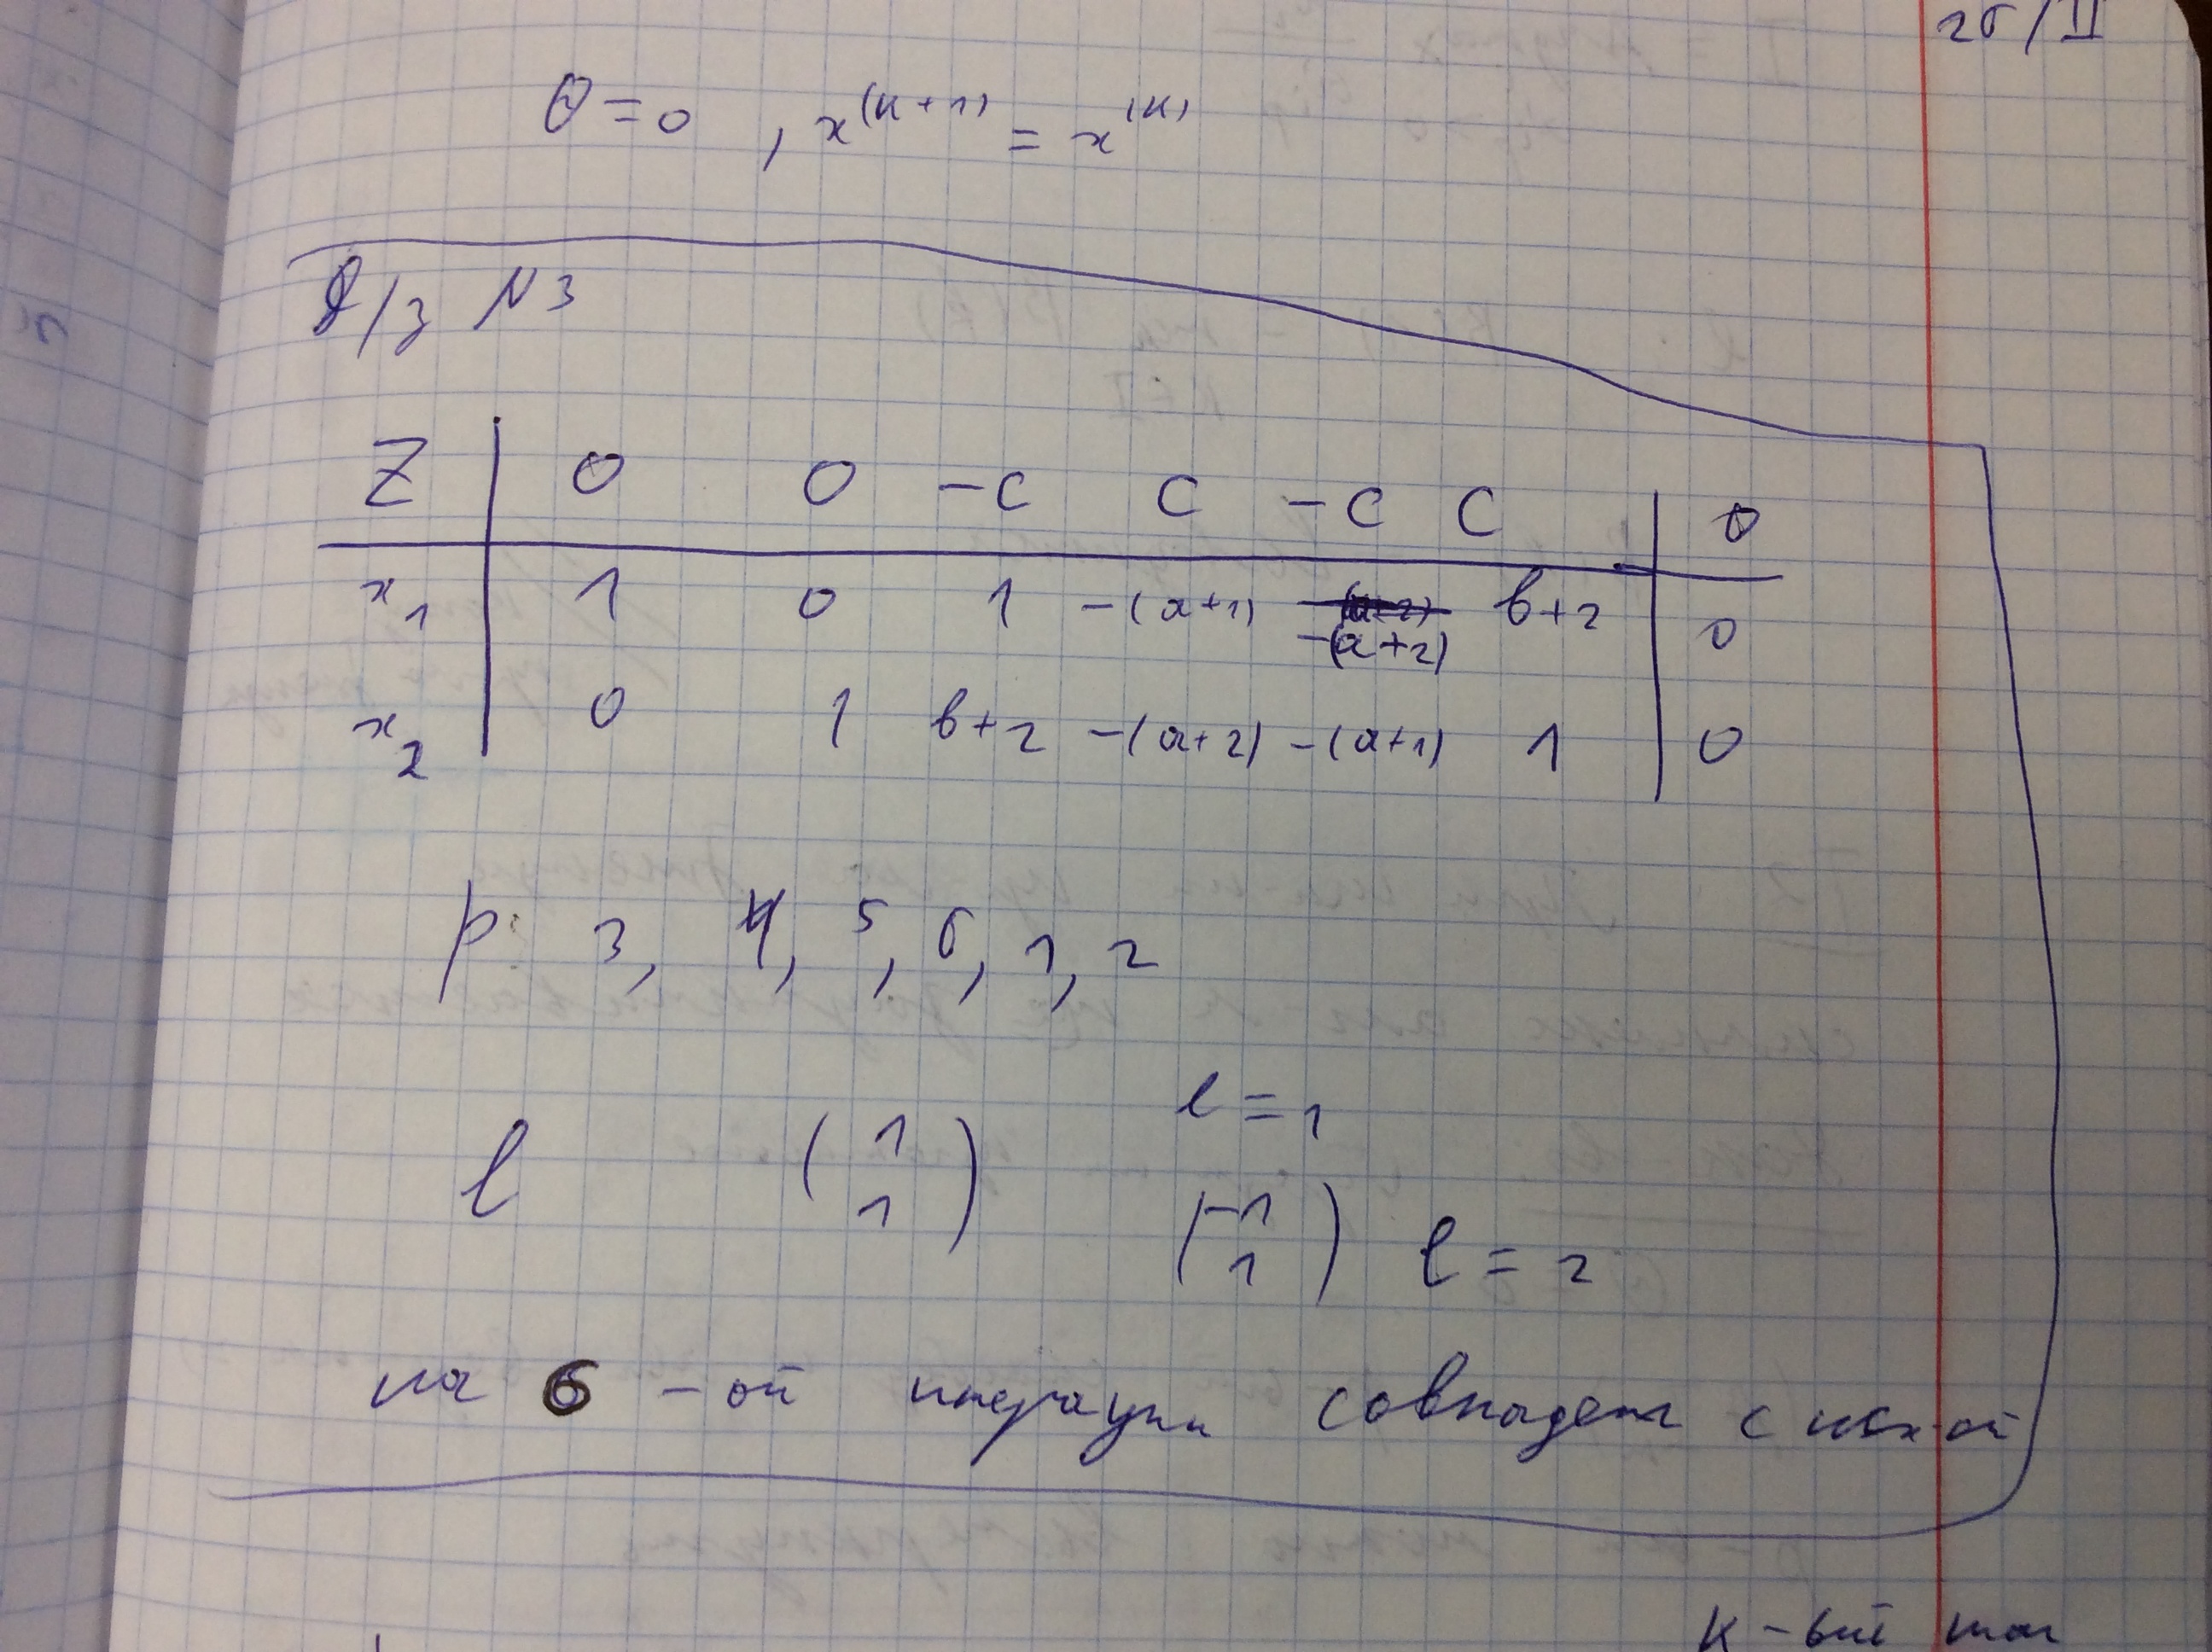 26/II
θ = 0, x^(k+1) = x^(k)
Д/з №3
Z | 0 0 -c c -c c | 0
x₁ | 1 0 1 -(a+1) -(a+2) b+2 | 0
x₂ | 0 1 b+2 -(a+2) -(a+1) 1 | 0
p: 3, 4, 5, 6, 1, 2
l (1 1) l = 1
(-1 1) l = 2
на 6-ой итерации совпадет с исх-ой
k-вый шаг